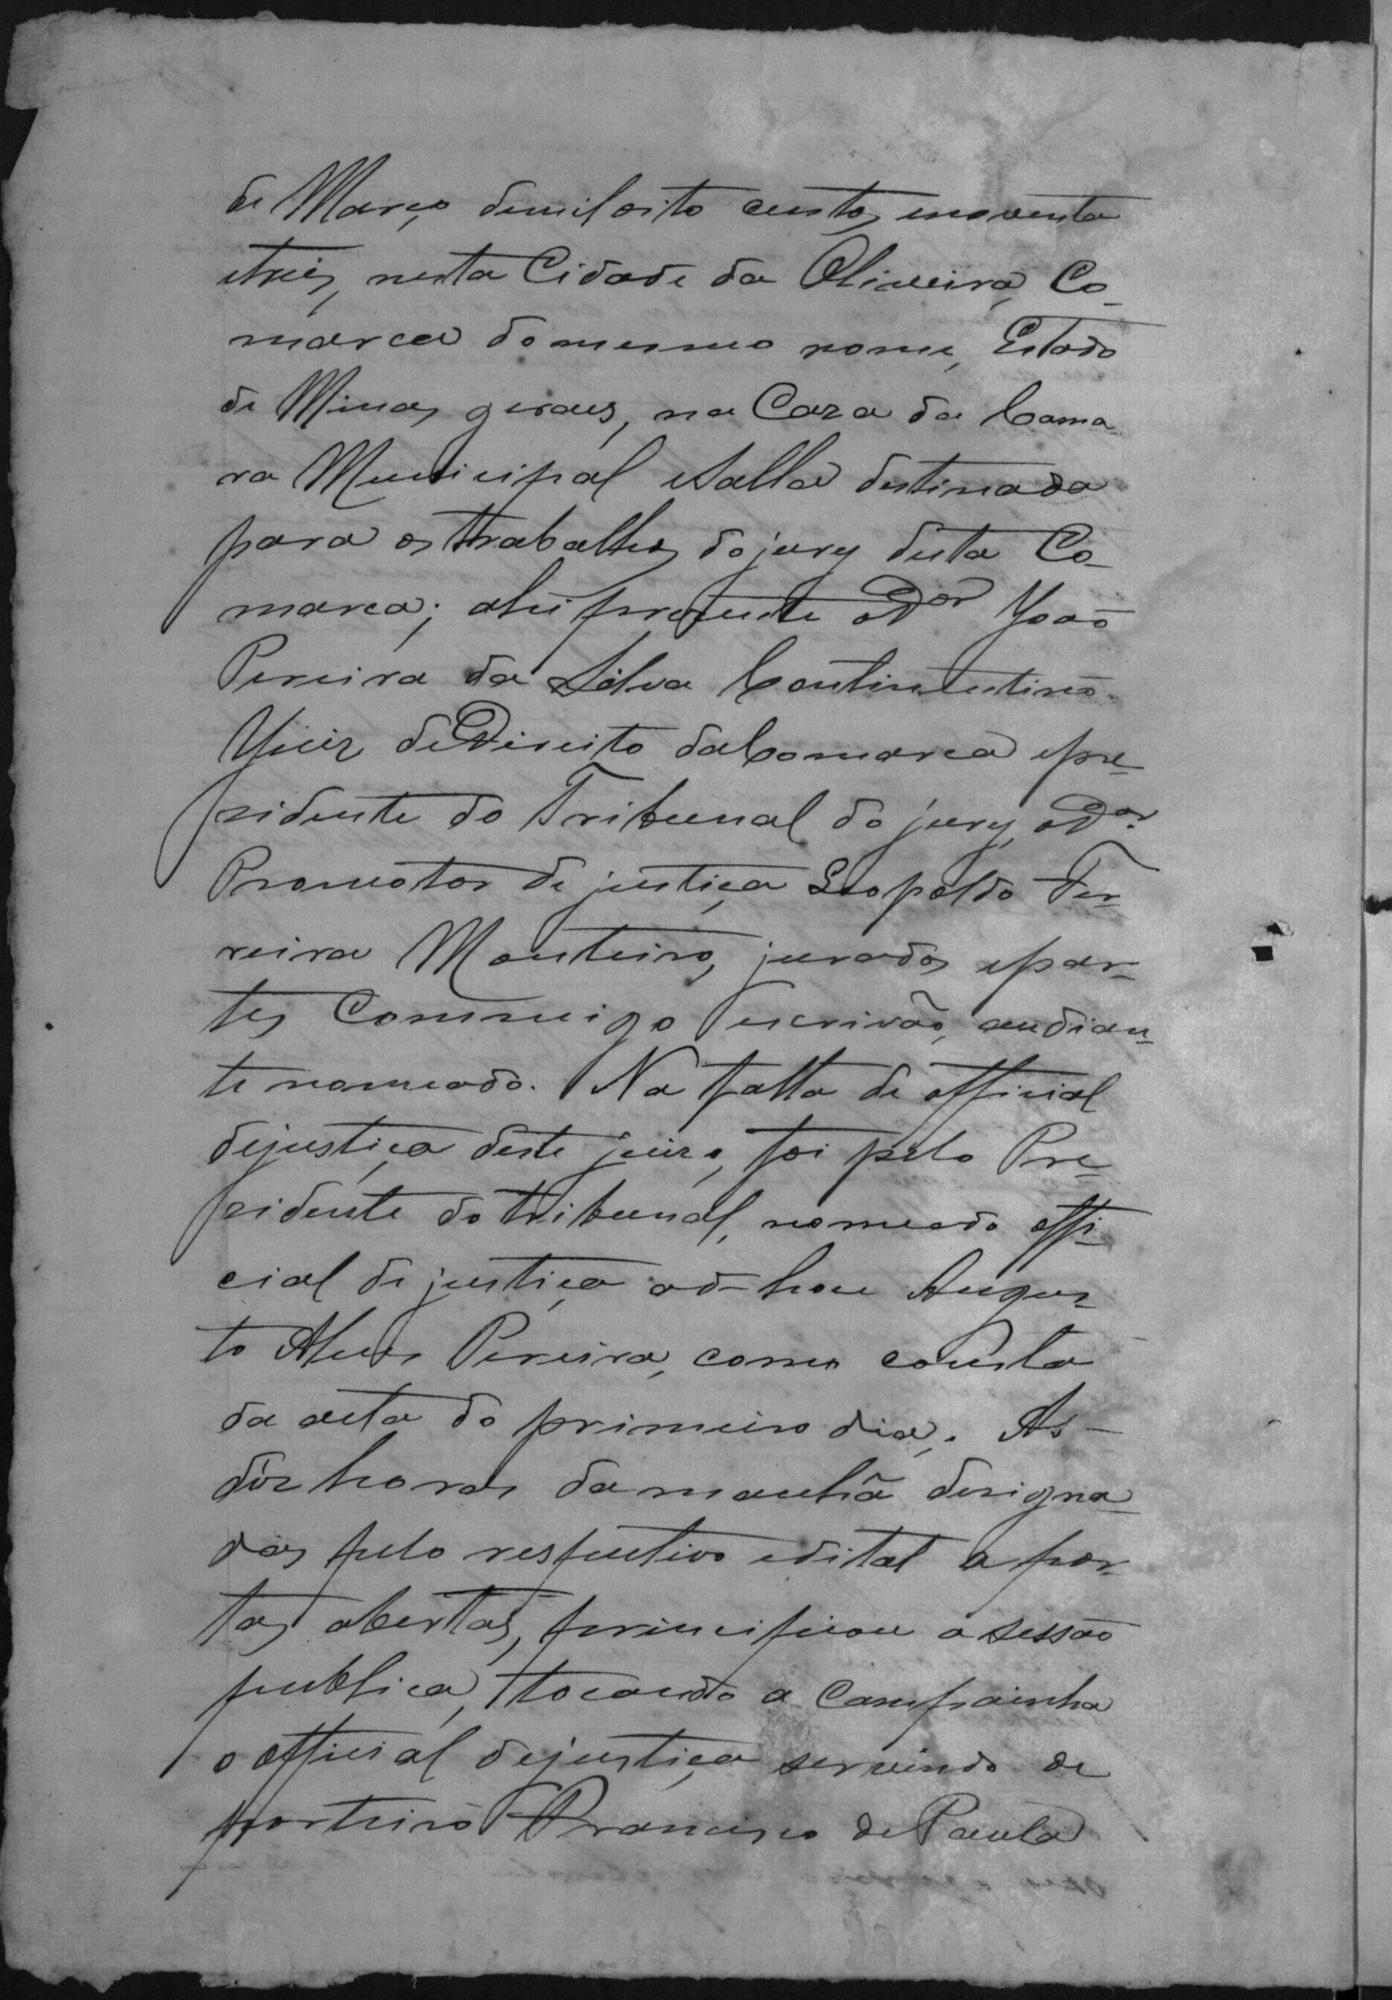 de Março demil oito centos, enoventa
etreis, nesta Cidade da Oliveira, Co-
marca domesmo nome, Estado
de Minas geraes, na Caza da Cama-
ra Municipal esalla destinada
para os trabalhos dojury desta Co-
marca; ahi presente oDor João
Pereira da Silva Continentino.
Yuiz deDireito daComarca epre-
zidente do Tribunal do jury, oDor.
Promotor de justiça Leopoldo Fer-
reira Monteiro, jurados epar-
tes Commigo escrivão, audian-
te nomeado. Na falta de official
dejustiça deste juizo, foi pelo Pre-
zidente do tribunal, nomeado offi-
cial de justiça ad-hou Augus-
to Alves Pereira, como consta
da acta do primeiro dia. As-
déz horas damanhã designa-
das pelo respectivo edital a por-
tas abertas, principiou a sessão
publica, tocando a Campainha
o official dejustiça servindo de
porteiro Francisco de Paula